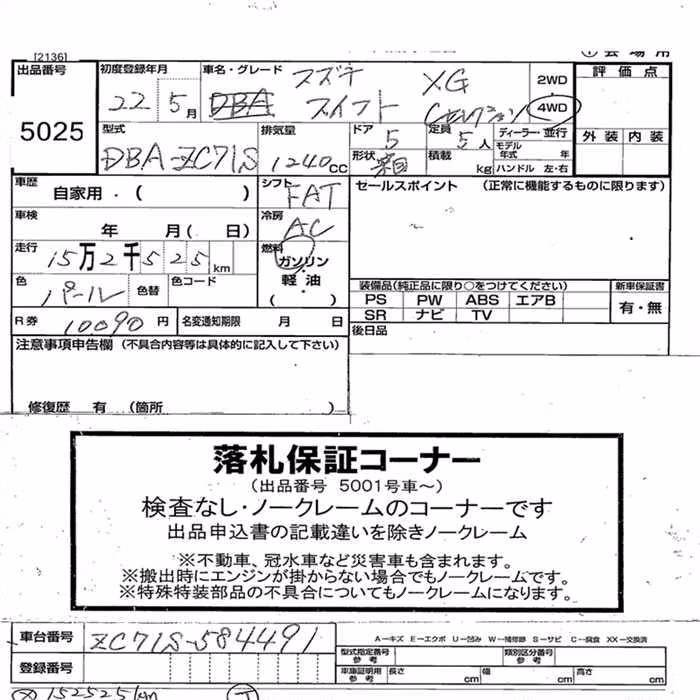 [2136]
出品番号 5025
初度登録年月 22 5月
車名・グレード スズキ XG
DBA スイフト Cセレクション
2WD
4WD
評価点
外装 内装
型式 DBA-ZC71S
排気量 1240cc
ドア 5
定員 5人
ディーラー・並行
モデル年式 年
形状 箱
積載 kg
ハンドル 左・右
車歴 自家用・( )
シフト FAT
セールスポイント (正常に機能するものに限ります)
車検 年 月( 日)
冷房 AC
走行 15万2千525km
燃料 ガソリン・軽油・( )
色 パール 色替 色コード
装備品(純正品に限り○をつけてください)
新車保証書
PS PW ABS エアB
SR ナビ TV
有・無
R券 10090円 名変通知期限 月 日
後日品
注意事項申告欄 (不具合内容等は具体的に記入して下さい)
修復歴 有 (箇所 )
落札保証コーナー
(出品番号 5001号車~)
検査なし・ノークレームのコーナーです
出品申込書の記載違いを除きノークレーム
※不動車、冠水車など災害車も含まれます。
※搬出時にエンジンが掛からない場合でもノークレームです。
※特殊特装部品の不具合についてもノークレームになります。
車台番号 ZC71S-584491
A―キズ E―エクボ U―凹み W―補修跡 S―サビ C―腐食 XX―交換済
型式指定番号 参考
類別区分番号 参考
登録番号
車庫証明用 参考 長さ cm 幅 cm 高さ cm
152525km